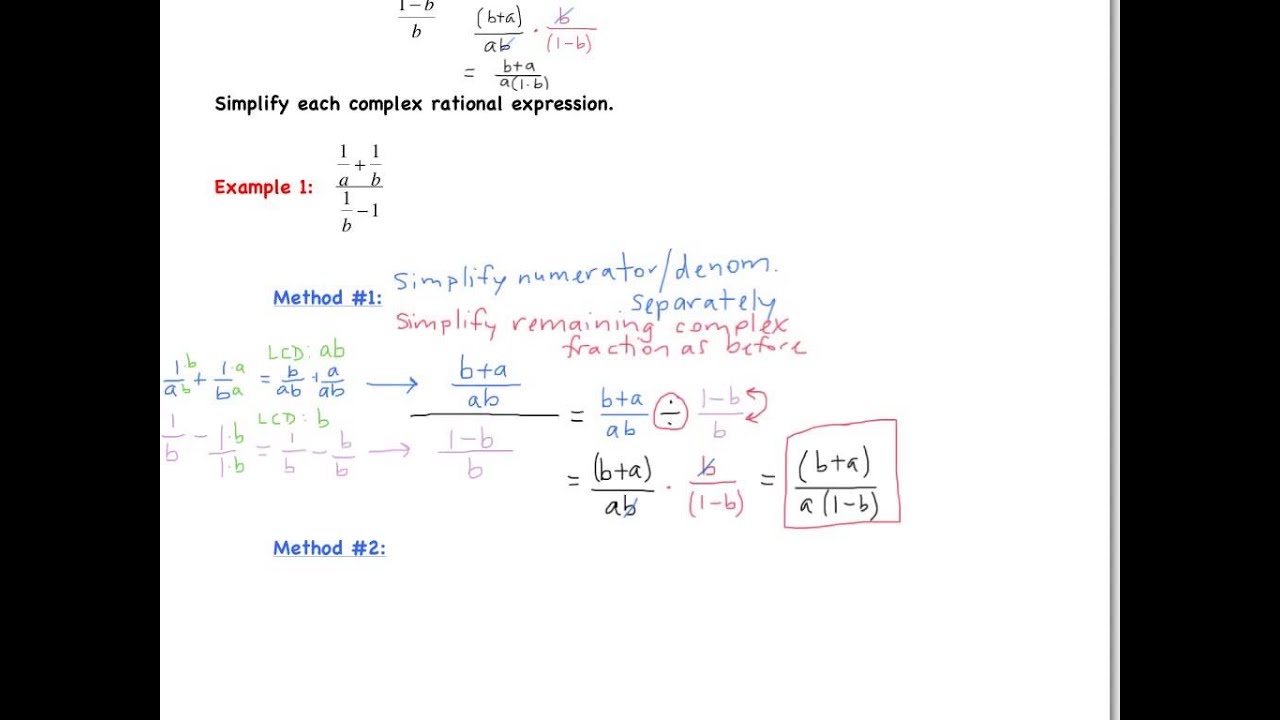 1−b
b
(b+a)
ab
· b
(1−b)
= b+a
a(1·b)
Simplify each complex rational expression.
Example 1:
1/a + 1/b
1/b − 1
Method #1: Simplify numerator/denom.
separately
Simplify remaining complex
fraction as before
LCD: ab
1·b/a·b + 1·a/b·a = b/ab + a/ab → b+a/ab
LCD: b
1/b − 1·b/1·b = 1/b − b/b → 1−b/b
= b+a/ab ÷ 1−b/b
= (b+a)/ab · b/(1−b) = (b+a)/a(1−b)
Method #2: